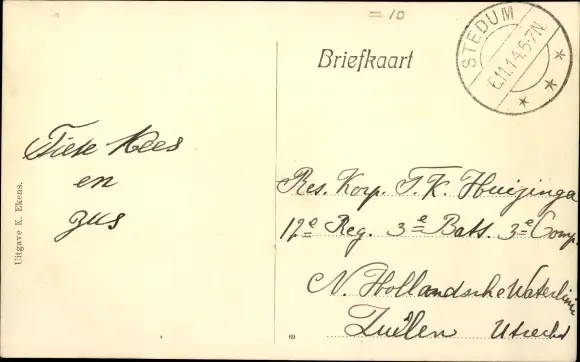 =10
STEDUM
6.11.14.6-7N
Briefkaart
Tiete Kees
en
zus
Uitgave K. Ekens.
Res. Korp. T. K. Huizinga
12e Reg. 3e Bats. 3e Comp.
N. Hollandsche Waterlinie
Zuilen Utrecht